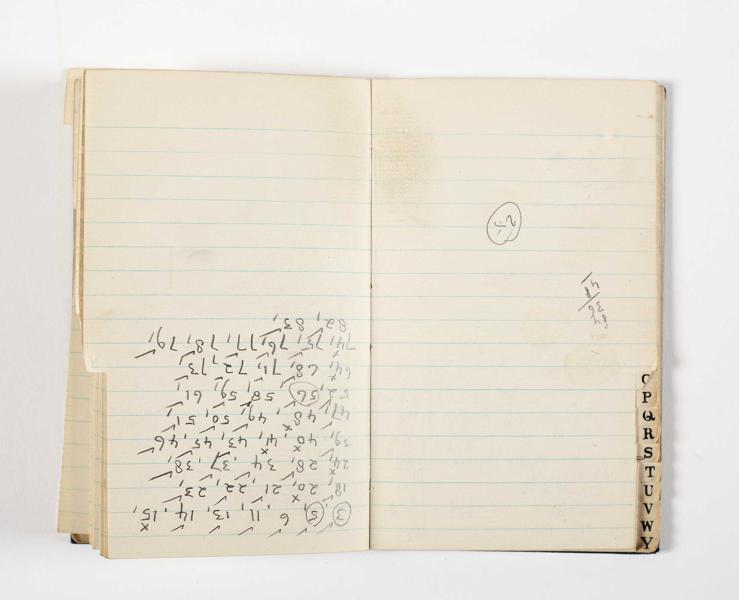 3, 5, 6, 11, 13, 14, 15,
18, 20, 21, 22, 23,
24, 28, 34, 37, 38,
39, 40, 41, 43, 45, 46
47, 48, 49, 50, 51
52, 56, 58, 59, 61
64, 68, 71, 72, 73
74, 75, 76, 77, 78, 79,
82, 83,
P
Q
R
S
T
U
V
W
Y